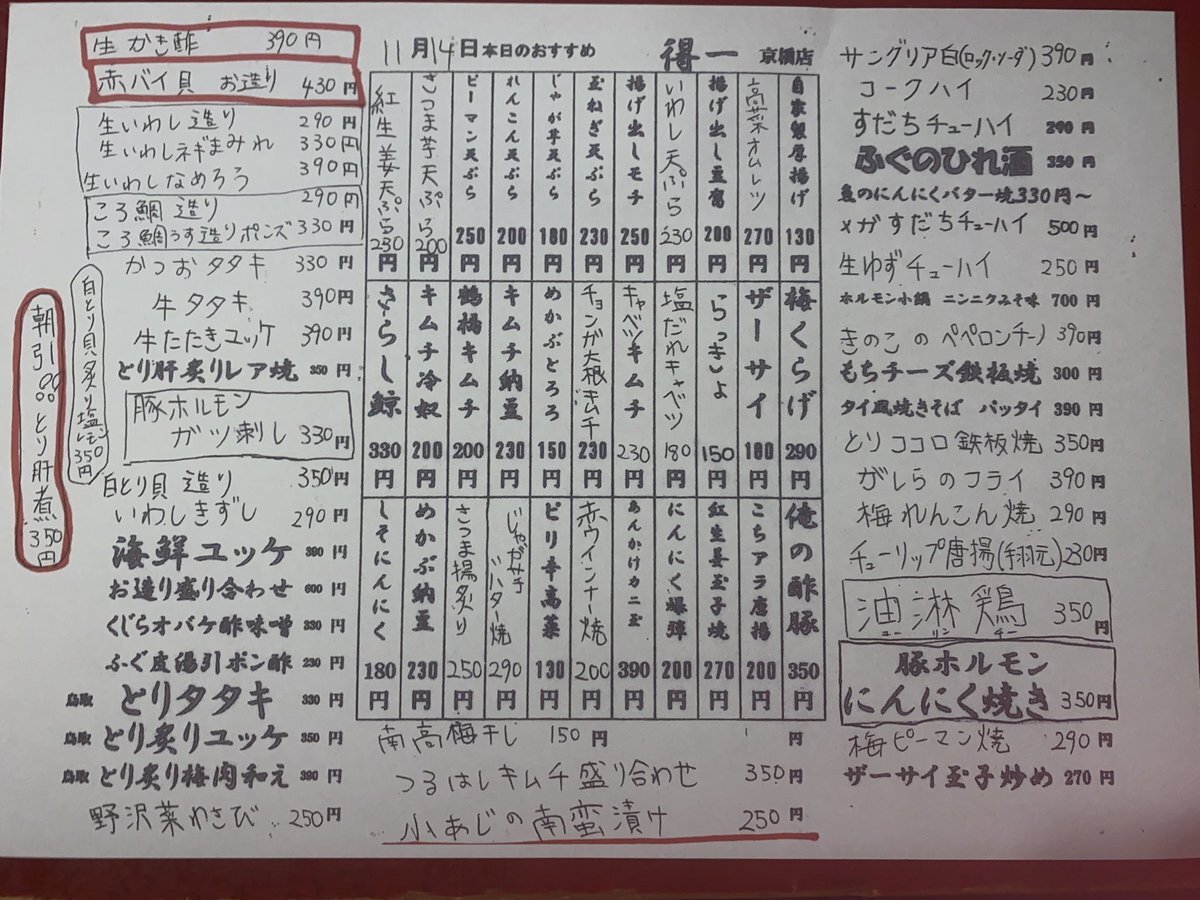 11月14日本日のおすすめ 得一 京橋店
生かき酢 390円
赤バイ貝 お造り 430円
生いわし造り 290円
生いわしネギまみれ 330円
生いわしなめろう 390円
ころ鯛造り 290円
ころ鯛うす造りポンズ 330円
かつおタタキ 330円
牛タタキ 390円
牛たたきユッケ 390円
とり肝炙りレア焼 350円
豚ホルモン
ガツ刺し 330円
白とり貝造り 350円
いわしきずし 290円
海鮮ユッケ 390円
お造り盛り合わせ 600円
くじらオバケ酢味噌 330円
ふぐ皮湯引ポン酢 230円
鳥取 とりタタキ 330円
鳥取 とり炙りユッケ 350円
鳥取 とり炙り梅肉和え 390円
野沢菜わさび 250円
白とり貝炙り塩レモン 350円
朝引き とり肝煮 350円
自家製厚揚げ 130円
高菜オムレツ 270円
揚げ出し豆腐 200円
いわし天ぷら 230円
揚げ出しモチ 250円
玉ねぎ天ぷら 230円
じゃが芋天ぷら 180円
れんこん天ぷら 200円
ピーマン天ぷら 250円
さつま芋天ぷら 200円
紅生姜天ぷら 230円
梅くらげ 290円
ザーサイ 180円
らっきょ 150円
塩だれキャベツ 180円
キャベツキムチ 230円
チョンガ大根キムチ 230円
めかぶとろろ 150円
キムチ納豆 230円
鶴橋キムチ 200円
キムチ冷奴 200円
さらし鯨 330円
俺の酢豚 350円
こちアラ唐揚 200円
紅生姜玉子焼 270円
にんにく爆弾 200円
あんかけカニ玉 390円
赤ウインナー焼 200円
ピリ辛高菜 130円
じゃがバター焼 290円
さつま揚炙り 250円
めかぶ納豆 230円
しそにんにく 180円
南高梅干し 150円
円
つるはしキムチ盛り合わせ 350円
小あじの南蛮漬け 250円
サングリア白(ロック・ソーダ) 390円
コークハイ 230円
すだちチューハイ 290円
ふぐのひれ酒 350円
魚のにんにくバター焼330円～
メガすだちチューハイ 500円
生ゆずチューハイ 250円
ホルモン小鍋 ニンニクみそ味 700円
きのこのペペロンチーノ 390円
もちチーズ鉄板焼 300円
タイ風焼きそば パッタイ 390円
とりココロ鉄板焼 350円
がしらのフライ 390円
梅れんこん焼 290円
チューリップ唐揚(手羽元) 230円
油淋鶏 350円
ユー リン チー
豚ホルモン
にんにく焼き 350円
梅ピーマン焼 290円
ザーサイ玉子炒め 270円